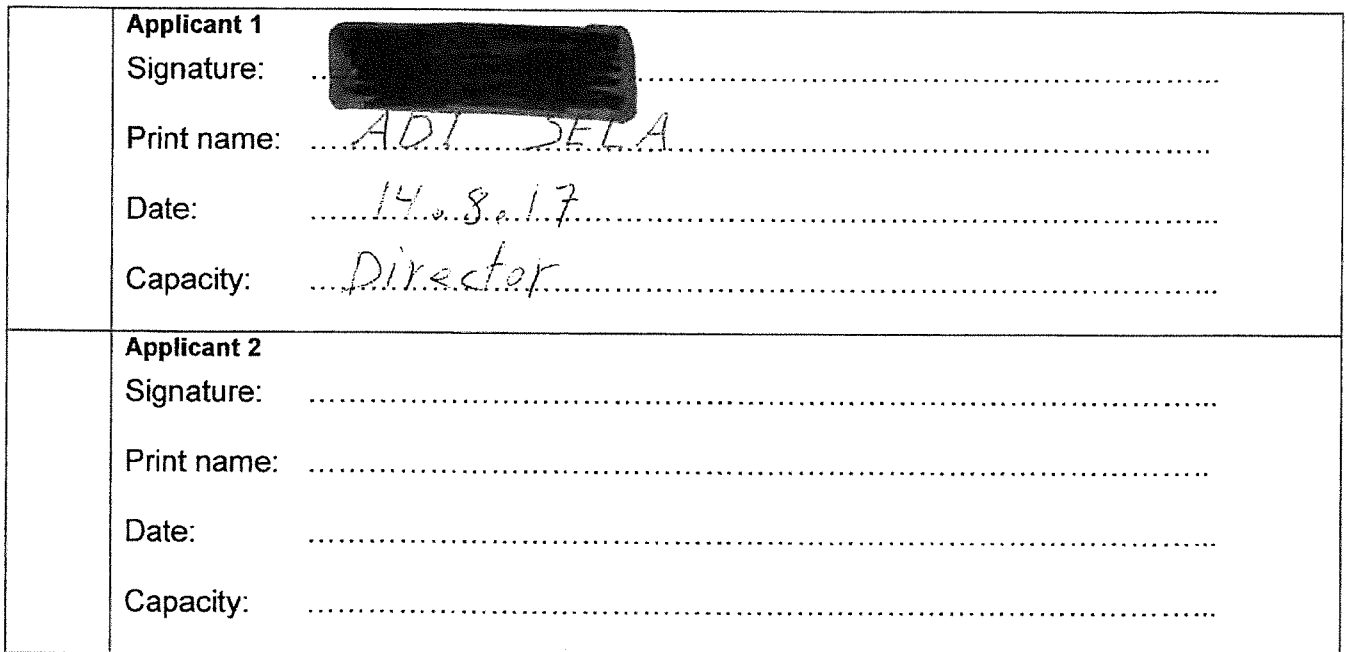 Applicant 1
Signature: ........................................................................
Print name: ADI SELA
Date: 14.8.17
Capacity: Director
Applicant 2
Signature: ........................................................................
Print name: ........................................................................
Date: ........................................................................
Capacity: ........................................................................